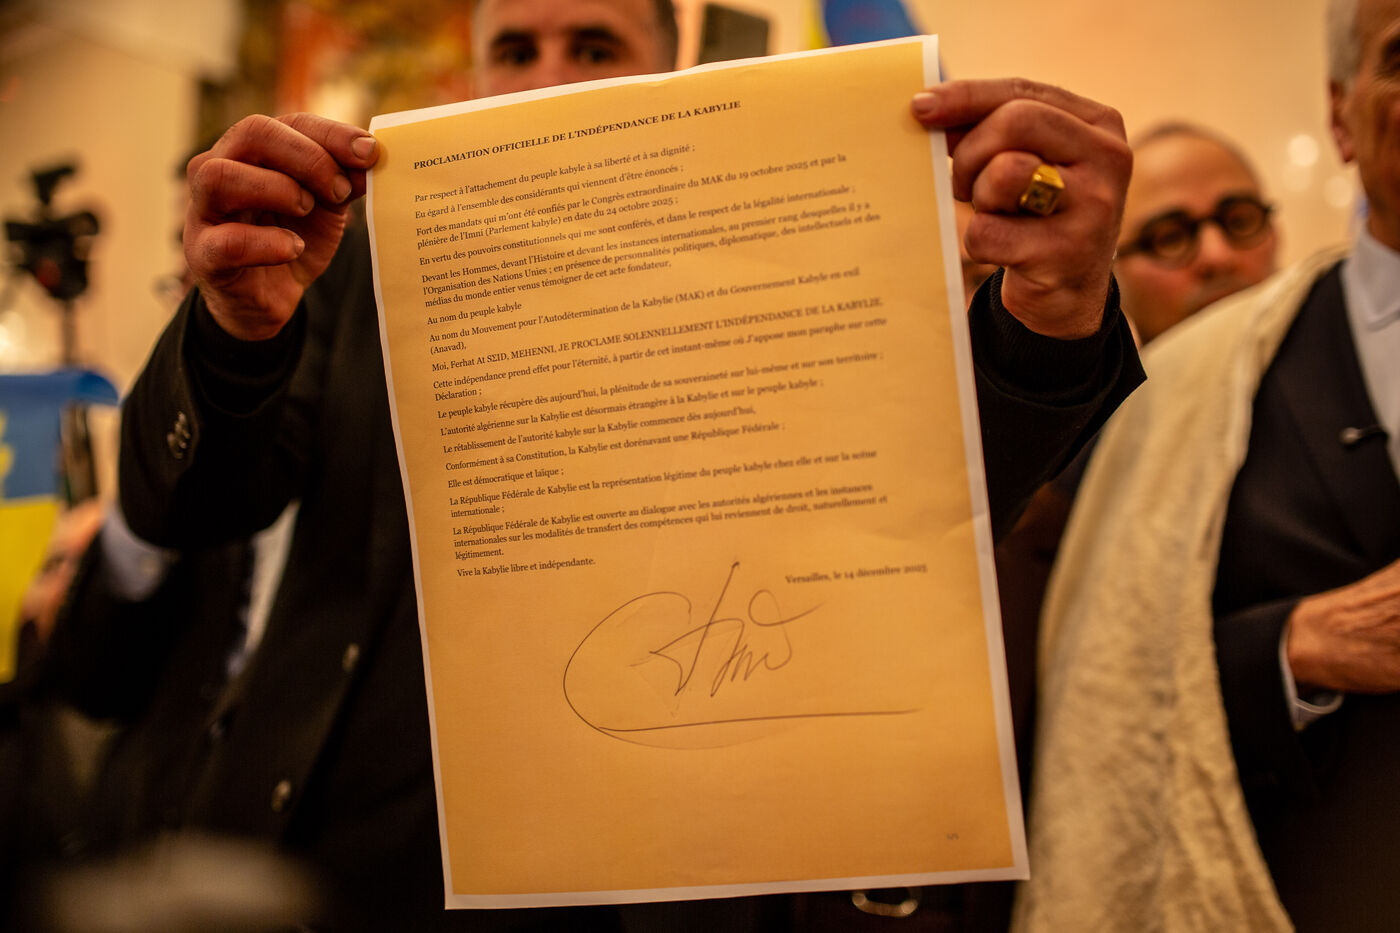 PROCLAMATION OFFICIELLE DE L'INDÉPENDANCE DE LA KABYLIE
Par respect à l'attachement du peuple kabyle à sa liberté et à sa dignité ;
Eu égard à l'ensemble des considérants qui viennent d'être énoncés ;
Fort des mandats qui m'ont été confiés par le Congrès extraordinaire du MAK du 19 octobre 2025 et par la
plénière de l'Imni (Parlement kabyle) en date du 24 octobre 2025 ;
En vertu des pouvoirs constitutionnels qui me sont conférés, et dans le respect de la légalité internationale ;
Devant les Hommes, devant l'Histoire et devant les instances internationales, au premier rang desquelles il y a
l'Organisation des Nations Unies ; en présence de personnalités politiques, diplomatique, des intellectuels et des
médias du monde entier venus témoigner de cet acte fondateur,
Au nom du peuple kabyle
Au nom du Mouvement pour l'Autodétermination de la Kabylie (MAK) et du Gouvernement Kabyle en exil
(Anavad),
Moi, Ferhat At SƐID, MEHENNI, JE PROCLAME SOLENNELLEMENT L'INDÉPENDANCE DE LA KABYLIE.
Cette indépendance prend effet pour l'éternité, à partir de cet instant-même où J'appose mon paraphe sur cette
Déclaration ;
Le peuple kabyle récupère dès aujourd'hui, la plénitude de sa souveraineté sur lui-même et sur son territoire ;
L'autorité algérienne sur la Kabylie est désormais étrangère à la Kabylie et sur le peuple kabyle ;
Le rétablissement de l'autorité kabyle sur la Kabylie commence dès aujourd'hui,
Conformément à sa Constitution, la Kabylie est dorénavant une République Fédérale ;
Elle est démocratique et laïque ;
La République Fédérale de Kabylie est la représentation légitime du peuple kabyle chez elle et sur la scène
internationale ;
La République Fédérale de Kabylie est ouverte au dialogue avec les autorités algériennes et les instances
internationales sur les modalités de transfert des compétences qui lui reviennent de droit, naturellement et
légitimement.
Vive la Kabylie libre et indépendante.
Versailles, le 14 décembre 2025